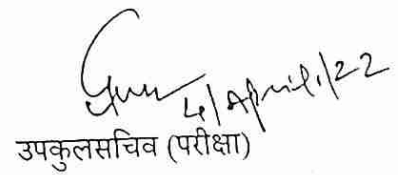 4/April/22
उपकुलसचिव (परीक्षा)